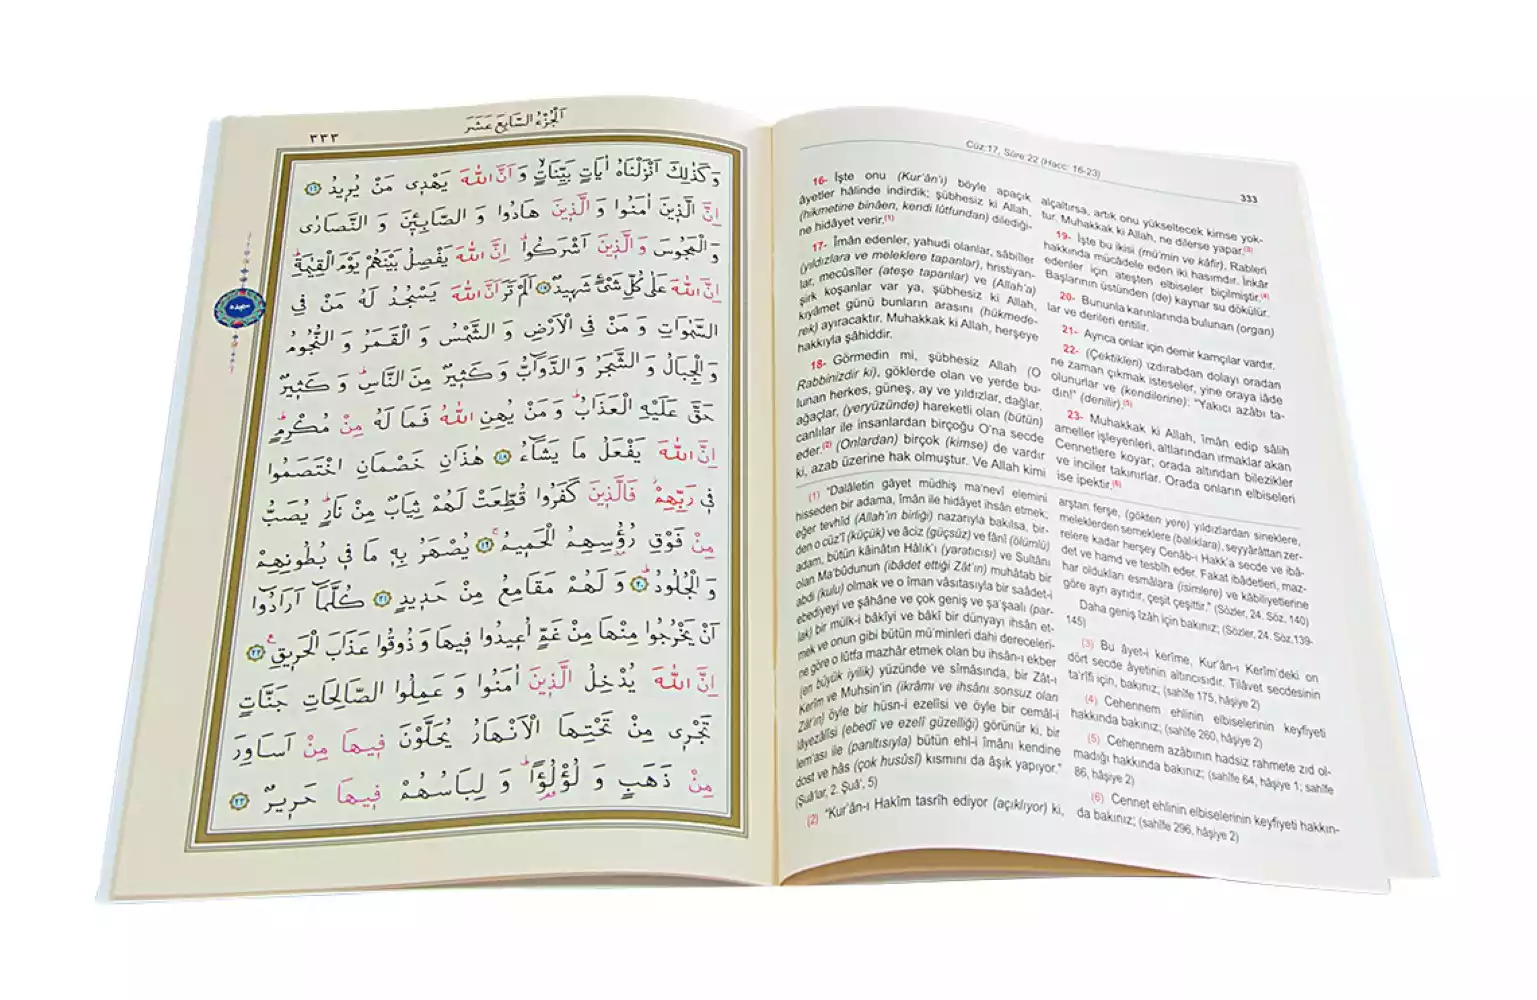 ٣٣٣
اَلْجُزْءُ السَّابِعَ عَشَرَ
وَكَذٰلِكَ اَنْزَلْنَاهُ اٰيَاتٍ بَيِّنَاتٍۙ وَاَنَّ اللّٰهَ يَهْدٖى مَنْ يُرٖيدُ ﴿١٦﴾
اِنَّ الَّذٖينَ اٰمَنُوا وَ الَّذٖينَ هَادُوا وَ الصَّابِـٖٔينَ وَ النَّصَارٰى
وَ الْمَجُوسَ وَ الَّذٖينَ اَشْرَكُواۗ اِنَّ اللّٰهَ يَفْصِلُ بَيْنَهُمْ يَوْمَ الْقِيٰمَةِۜ
اِنَّ اللّٰهَ عَلٰى كُلِّ شَیْءٍ شَهٖيدٌ ﴿١٧﴾ اَلَمْ تَرَ اَنَّ اللّٰهَ يَسْجُدُ لَهُ مَنْ فِى
السَّمٰوَاتِ وَ مَنْ فِى الْاَرْضِ وَ الشَّمْسُ وَ الْقَمَرُ وَ النُّجُومُ
وَ الْجِبَالُ وَ الشَّجَرُ وَ الدَّوَٓابُّ وَ كَثٖيرٌ مِنَ النَّاسِۜ وَ كَثٖيرٌ
حَقَّ عَلَيْهِ الْعَذَابُۜ وَ مَنْ يُهِنِ اللّٰهُ فَمَا لَهُ مِنْ مُكْرِمٍۜ
اِنَّ اللّٰهَ يَفْعَلُ مَا يَشَٓاءُ ﴿١٨﴾ هٰذَانِ خَصْمَانِ اخْتَصَمُوا
فٖى رَبِّهِمْۘ فَالَّذٖينَ كَفَرُوا قُطِّعَتْ لَهُمْ ثِيَابٌ مِنْ نَارٍۜ يُصَبُّ
مِنْ فَوْقِ رُؤُسِهِمُ الْحَمٖيمُۚ ﴿١٩﴾ يُصْهَرُ بِهٖ مَا فٖى بُطُونِهِمْ
وَ الْجُلُودُۜ ﴿٢٠﴾ وَ لَهُمْ مَقَامِعُ مِنْ حَدٖيدٍ ﴿٢١﴾ كُلَّمَٓا اَرَادُٓوا
اَنْ يَخْرُجُوا مِنْهَا مِنْ غَمٍّ اُعٖيدُوا فٖيهَا وَ ذُوقُوا عَذَابَ الْحَرٖيقِ ﴿٢٢﴾
اِنَّ اللّٰهَ يُدْخِلُ الَّذٖينَ اٰمَنُوا وَ عَمِلُوا الصَّالِحَاتِ جَنَّاتٍ
تَجْرٖى مِنْ تَحْتِهَا الْاَنْهَارُ يُحَلَّوْنَ فٖيهَا مِنْ اَسَاوِرَ
مِنْ ذَهَبٍ وَ لُؤْلُؤًاۜ وَ لِبَاسُهُمْ فٖيهَا حَرٖيرٌ ﴿٢٣﴾
سجده
Cüz:17, Sûre:22 (Hacc: 16-23)
333
16- İşte onu (Kur'ân'ı) böyle apaçık
âyetler hâlinde indirdik; şübhesiz ki Allah,
(hikmetine binâen, kendi lütfundan) dilediği-
ne hidâyet verir.(1)
17- Îmân edenler, yahudi olanlar, sâbiîler
(yıldızlara ve meleklere tapanlar), hristiyan-
lar, mecûsîler (ateşe tapanlar) ve (Allah'a)
şirk koşanlar var ya, şübhesiz ki Allah,
kıyâmet günü bunların arasını (hükmede-
rek) ayıracaktır. Muhakkak ki Allah, herşeye
hakkıyla şâhiddir.
18- Görmedin mi, şübhesiz Allah (O
Rabbinizdir ki), göklerde olan ve yerde bu-
lunan herkes, güneş, ay ve yıldızlar, dağlar,
ağaçlar, (yeryüzünde) hareketli olan (bütün)
canlılar ile insanlardan birçoğu O'na secde
eder.(2) (Onlardan) birçok (kimse) de vardır
ki, azab üzerine hak olmuştur. Ve Allah kimi
alçaltırsa, artık onu yükseltecek kimse yok-
tur. Muhakkak ki Allah, ne dilerse yapar.(3)
19- İşte bu ikisi (mü'min ve kâfir), Rableri
hakkında mücâdele eden iki hasımdır. İnkâr
edenler için ateşten elbiseler biçilmiştir.(4)
Başlarının üstünden (de) kaynar su dökülür.
20- Bununla karınlarında bulunan (organ)
lar ve derileri eritilir.
21- Ayrıca onlar için demir kamçılar vardır.
22- (Çektikleri) ızdırabdan dolayı oradan
ne zaman çıkmak isteseler, yine oraya iâde
olunurlar ve (kendilerine): "Yakıcı azâbı ta-
dın!" (denilir).(5)
23- Muhakkak ki Allah, îmân edip sâlih
ameller işleyenleri, altlarından ırmaklar akan
Cennetlere koyar; orada altından bilezikler
ve inciler takınırlar. Orada onların elbiseleri
ise ipektir.(6)
(1) "Dalâletin gâyet müdhiş ma'nevî elemini
hisseden bir adama, îmân ile hidâyet ihsân etmek;
eğer tevhîd (Allah'ın birliği) nazarıyla bakılsa, bir-
den o cüz'î (küçük) ve âciz (güçsüz) ve fânî (ölümlü)
adam, bütün kâinâtın Hâlık'ı (yaratıcısı) ve Sultânı
olan Ma'bûdunun (ibâdet ettiği Zât'ın) muhâtab bir
abdi (kulu) olmak ve o îman vâsıtasıyla bir saâdet-i
ebediyeyi ve şâhâne ve çok geniş ve şa'şaalı (par-
lak) bir mülk-i bâkîyi ve bâkî bir dünyayı ihsân et-
mek ve onun gibi bütün mü'minleri dahi dereceleri-
ne göre o lûtfa mazhâr etmek olan bu ihsân-ı ekber
(en büyük iyilik) yüzünde ve sîmâsında, bir Zât-ı
Kerîm ve Muhsin'in (ikrâmı ve ihsânı sonsuz olan
Zât'ın) öyle bir hüsn-i ezelîsi ve öyle bir cemâl-i
lâyezâlîsi (ebedî ve ezelî güzelliği) görünür ki, bir
lem'ası ile (parıltısıyla) bütün ehl-i îmânı kendine
dost ve hâs (çok husûsî) kısmını da âşık yapıyor."
(Şuâ'lar, 2. Şuâ', 5)
(2) "Kur'ân-ı Hakîm tasrîh ediyor (açıklıyor) ki,
arştan ferşe, (gökten yere) yıldızlardan sineklere,
meleklerden semeklere (balıklara), seyyârâttan zer-
relere kadar herşey Cenâb-ı Hakk'a secde ve ibâ-
det ve hamd ve tesbîh eder. Fakat ibâdetleri, maz-
har oldukları esmâlara (isimlere) ve kâbiliyetlerine
göre ayrı ayrıdır, çeşit çeşittir." (Sözler, 24. Söz, 140)
Daha geniş îzâh için bakınız; (Sözler, 24. Söz,139-
145)
(3) Bu âyet-i kerîme, Kur'ân-ı Kerîm'deki on
dört secde âyetinin altıncısıdır. Tilâvet secdesinin
ta'rîfi için, bakınız; (sahîfe 175, hâşiye 2)
(4) Cehennem ehlinin elbiselerinin keyfiyeti
hakkında bakınız; (sahîfe 260, hâşiye 2)
(5) Cehennem azâbının hadsiz rahmete zıd ol-
madığı hakkında bakınız; (sahîfe 64, hâşiye 1; sahîfe
86, hâşiye 2)
(6) Cennet ehlinin elbiselerinin keyfiyeti hakkın-
da bakınız; (sahîfe 296, hâşiye 2)